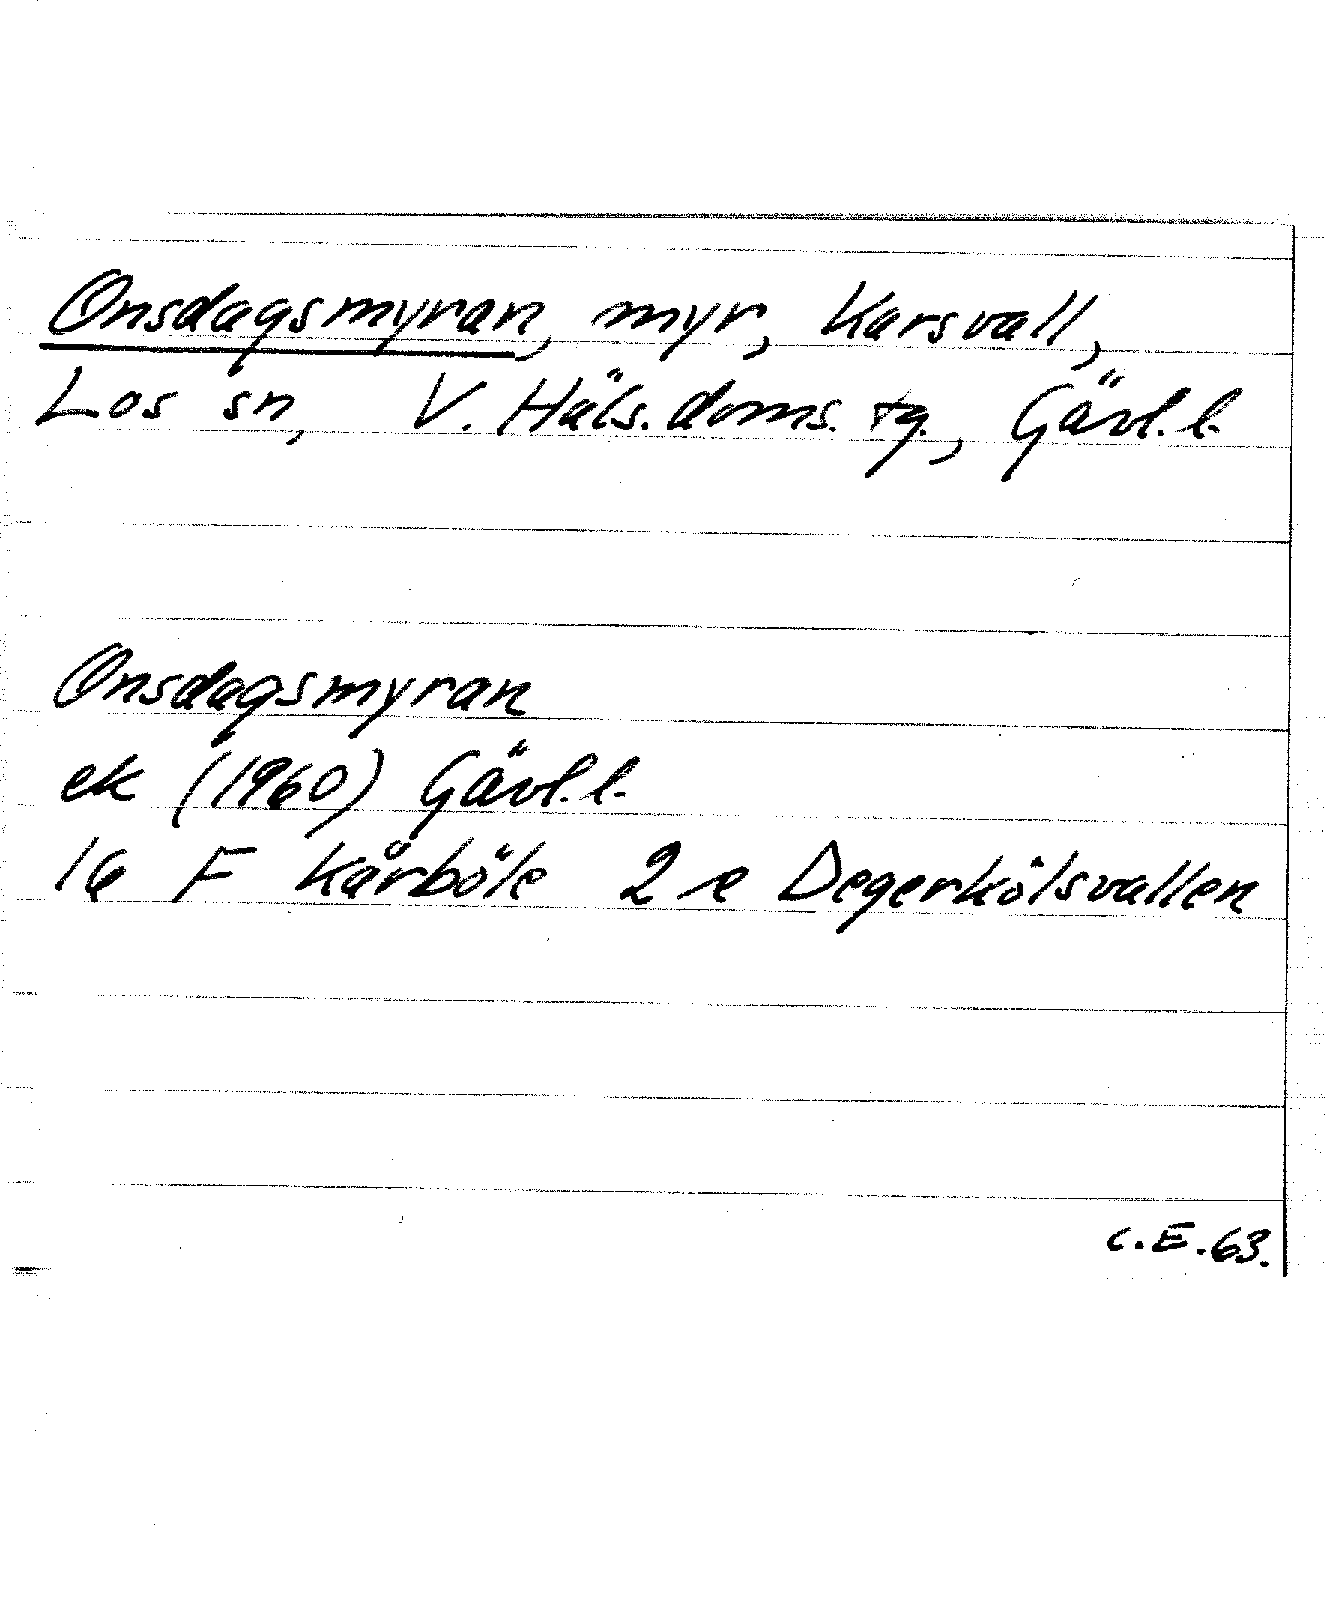 Onsdagsmyran, myr, Karsvall,
Los sn, V. Häls. doms. tg., Gävl. l.
Onsdagsmyran
ek (1960) Gävl. l.
16 F Kårböle 2 e Degerkölsvallen
C. E. 63.